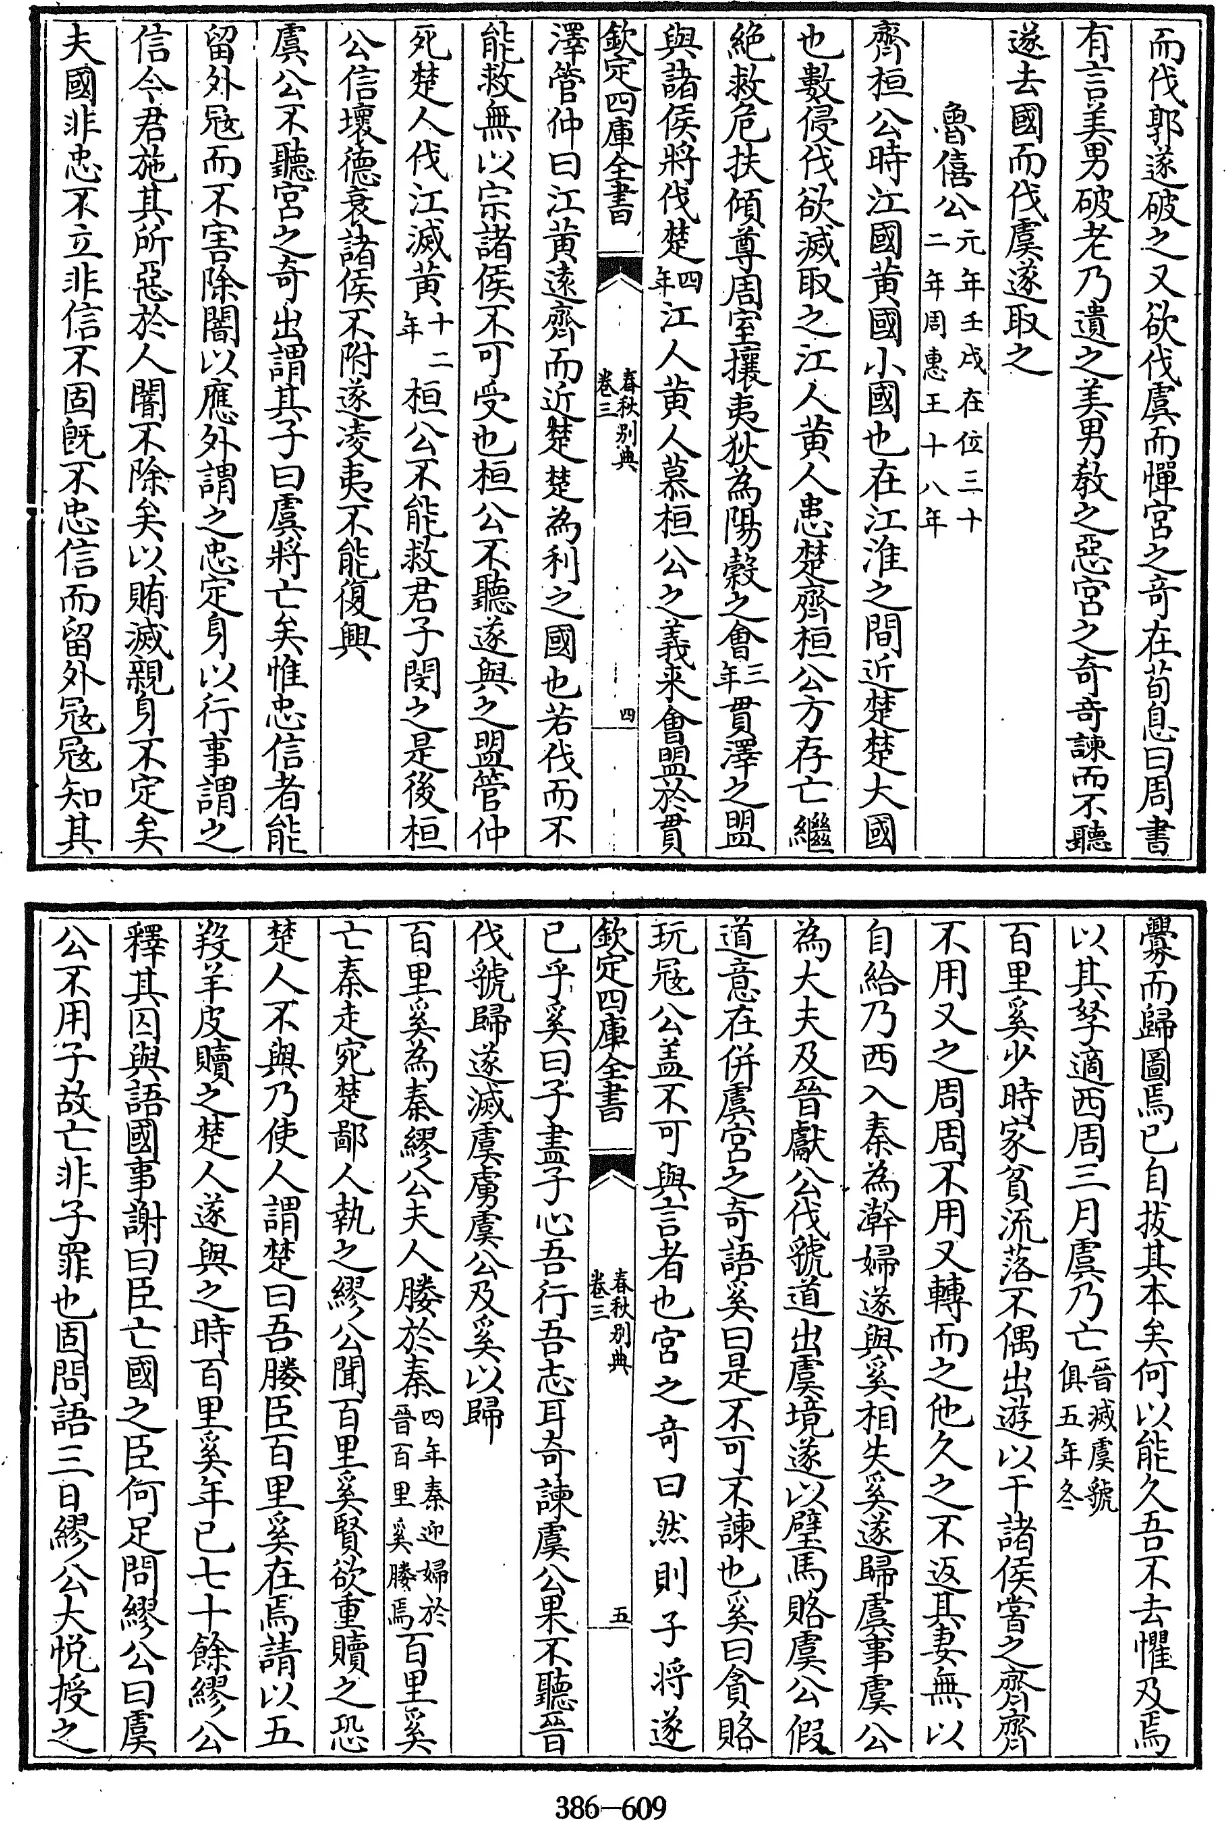 而伐郭遂破之又欲伐虞而憚宮之奇在荀息曰周書
有言美男破老乃遺之美男教之惡宮之奇奇諫而不聽
遂去國而伐虞遂取之
魯僖公元年壬戌在位三十二年周惠王十八年
齊桓公時江國黄國小國也在江淮之間近楚楚大國
也數侵伐欲滅取之江人黄人患楚齊桓公方存亡繼
絶救危扶傾尊周室攘夷狄為陽榖之會三年貫澤之盟
與諸侯將伐楚四年江人黄人慕桓公之義来會盟於貫
欽定四庫全書
春秋别典
卷三
四
澤管仲曰江黄遠齊而近楚楚為利之國也若伐而不
能救無以宗諸侯不可受也桓公不聽遂與之盟管仲
死楚人伐江滅黄十二年桓公不能救君子閔之是後桓
公信壞德衰諸侯不附遂凌夷不能復興
虞公不聽宮之奇出謂其子曰虞將亡矣惟忠信者能
留外冦而不害除闇以應外謂之忠定身以行事謂之
信今君施其所惡於人闇不除矣以賄滅親身不定矣
夫國非忠不立非信不固旣不忠信而留外冦冦知其
釁而歸圖焉已自拔其本矣何以能久吾不去懼及焉
以其孥適西周三月虞乃亡晉滅虞虢俱五年冬
百里奚少時家貧流落不偶出遊以干諸侯嘗之齊齊
不用又之周周不用又轉而之他久之不返其妻無以
自給乃西入秦為澣婦遂與奚相失奚遂歸虞事虞公
為大夫及晉獻公伐虢道出虞境遂以璧馬賂虞公假
道意在併虞宮之奇語奚曰是不可不諫也奚曰貪賂
玩冦公盖不可與言者也宮之奇曰然則子将遂
欽定四庫全書
春秋别典
卷三
五
已乎奚曰子盡子心吾行吾志耳奇諫虞公果不聽晉
伐虢歸遂滅虞虜虞公及奚以歸
百里奚為秦繆公夫人媵於秦四年秦迎婦於晉百里奚媵焉百里奚
亡秦走宛楚鄙人執之繆公聞百里奚賢欲重贖之恐
楚人不與乃使人謂楚曰吾媵臣百里奚在焉請以五
羖羊皮贖之楚人遂與之時百里奚年已七十餘繆公
釋其囚與語國事謝曰臣亡國之臣何足問繆公曰虞
公不用子故亡非子罪也固問語三日繆公大悅授之
386—609